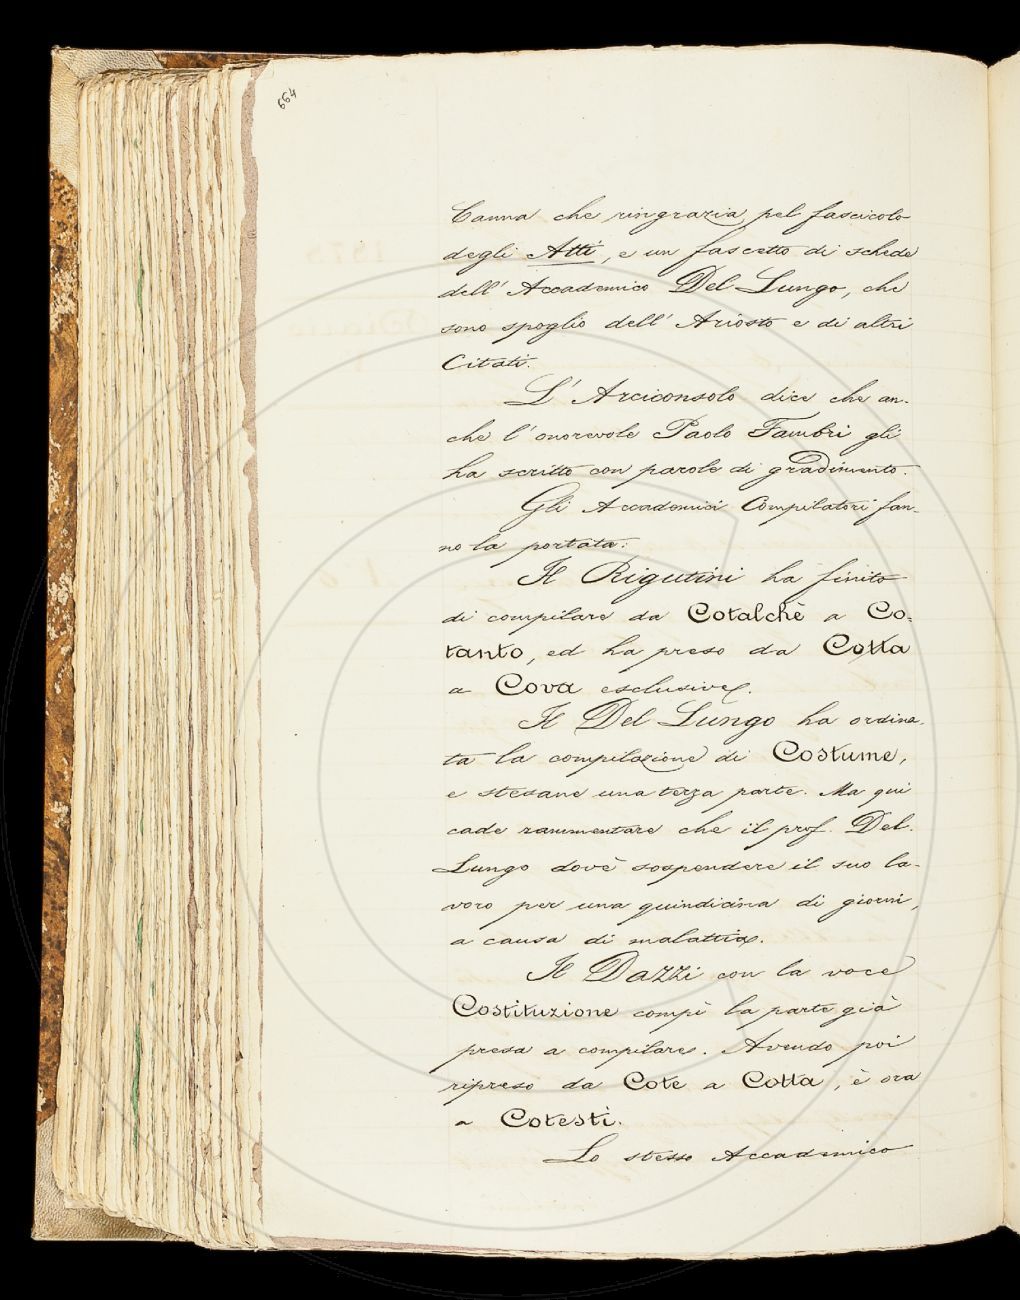 664
Canna che ringrazia pel fascicolo
degli Atti, e un fascetto di schede
dell' Accademico Del Lungo, che
sono spoglio dell' Ariosto e di altri
Citati.
L' Arciconsolo dice che an-
che l' onorevole Paolo Fambri gli
ha scritto con parole di gradimento.
Gli Accademici Compilatori fan-
no la portata:
Il Rigutini ha finito
di compilare da Cotalchè a Co-
tanto, ed ha preso da Cotta
a Cova esclusive.
Il Del Lungo ha ordina-
ta la compilazione di Costume,
e stesane una terza parte. Ma qui
cade rammentare che il prof. Del
Lungo dovè sospendere il suo la-
voro per una quindicina di giorni,
a causa di malattia.
Il Dazzi con la voce
Costituzione compì la parte già
presa a compilare. Avendo poi
ripreso da Cote a Cotta, è ora
a Cotesti.
Lo stesso Accademico